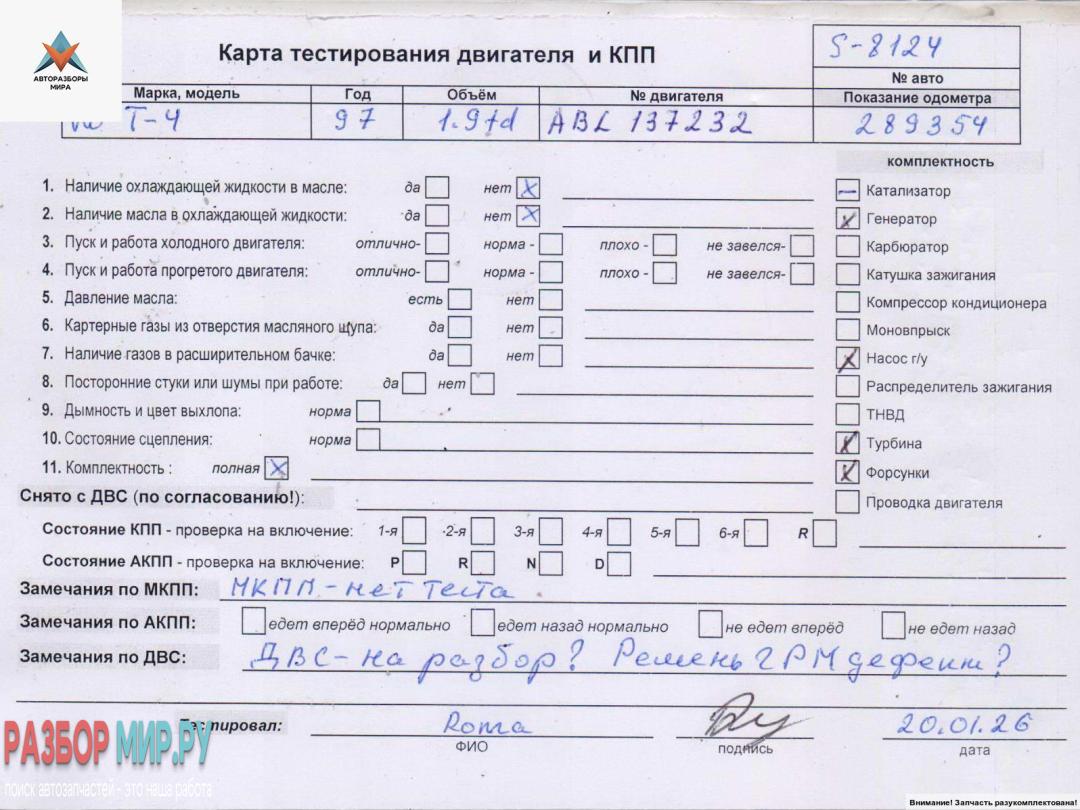 АВТОРАЗБОРЫ
МИРА
Карта тестирования двигателя и КПП
S-8124
№ авто
Марка, модель Год Объём № двигателя Показание одометра
T-4 97 1.9td ABL 137232 289354
комплектность
1. Наличие охлаждающей жидкости в масле: да нет X
2. Наличие масла в охлаждающей жидкости: да нет X
3. Пуск и работа холодного двигателя: отлично- норма - плохо - не завелся-
4. Пуск и работа прогретого двигателя: отлично- норма - плохо - не завелся-
5. Давление масла: есть нет
6. Картерные газы из отверстия масляного щупа: да нет
7. Наличие газов в расширительном бачке: да нет
8. Посторонние стуки или шумы при работе: да нет
9. Дымность и цвет выхлопа: норма
10. Состояние сцепления: норма
11. Комплектность : полная X
— Катализатор
X Генератор
Карбюратор
Катушка зажигания
Компрессор кондиционера
Моновпрыск
X Насос г/у
Распределитель зажигания
ТНВД
X Турбина
X Форсунки
Проводка двигателя
Снято с ДВС (по согласованию!):
Состояние КПП - проверка на включение: 1-я 2-я 3-я 4-я 5-я 6-я R
Состояние АКПП - проверка на включение: P R N D
Замечания по МКПП: МКПП-нет теста
Замечания по АКПП: едет вперёд нормально едет назад нормально не едет вперёд не едет назад
Замечания по ДВС: ДВС-на разбор? Ремень ГРМ дефект?
Тестировал: Roma 20.01.26
ФИО подпись дата
РАЗБОР МИР.РУ
поиск автозапчастей - это наша работа
Внимание! Запчасть разукомплектована!